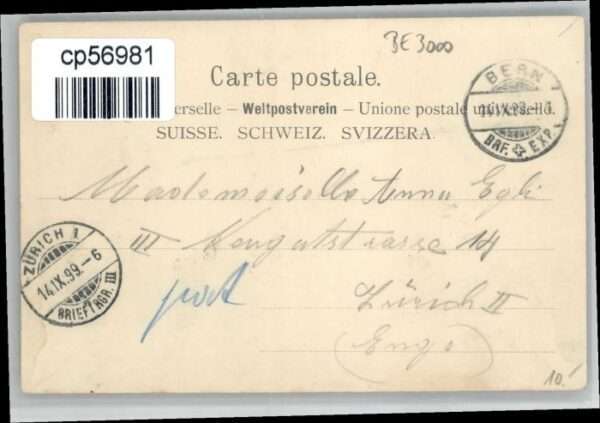 cp56981
BE 3000
Carte postale.
erselle – Weltpostverein – Unione postale universelle.
SUISSE. SCHWEIZ. SVIZZERA.
BERN 1
14.IX.99.-1
BRF. EXP.
Mademoiselle Anna Egli
III 14
Zürich II
(Enge)
ZÜRICH 1
14.IX.99.-6
BRIEFTRGR. III
10.-